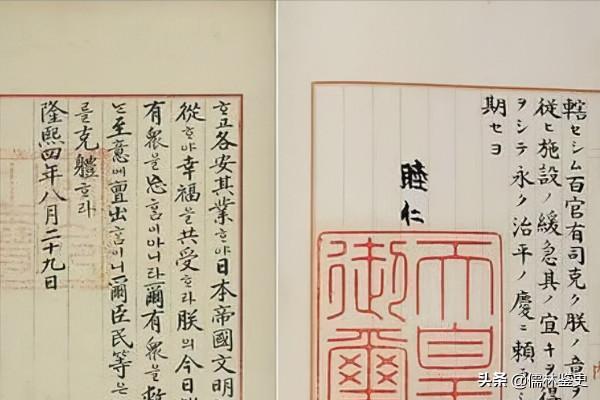 轄セシム百官有司克ク朕ノ意ヲ
從ヒ施設ノ緩急其ノ宜キヲ得
ヲシテ永ク治平ノ慶ニ頼
期セヨ
睦仁
天皇
御璽
ᄒᆞ고各安其業ᄒᆞ야日本帝國文明
從ᄒᆞ야幸福을共受ᄒᆞ라朕의今日
有衆을忘홈이아니라爾有衆을救
는至意에亶出홈이니爾臣民等은
를克體ᄒᆞ라
隆熙四年八月二十九日
头条 @儒林鉴史